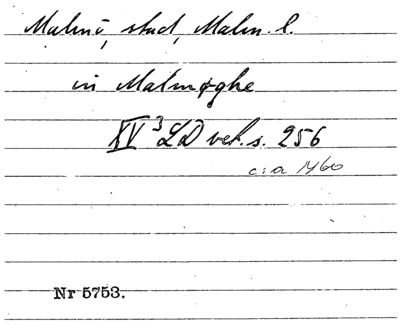 Malmö, stad, Malm. l.
in Malmøghe
XV³ LD vek. s. 256
c:a 1460
Nr 5753.